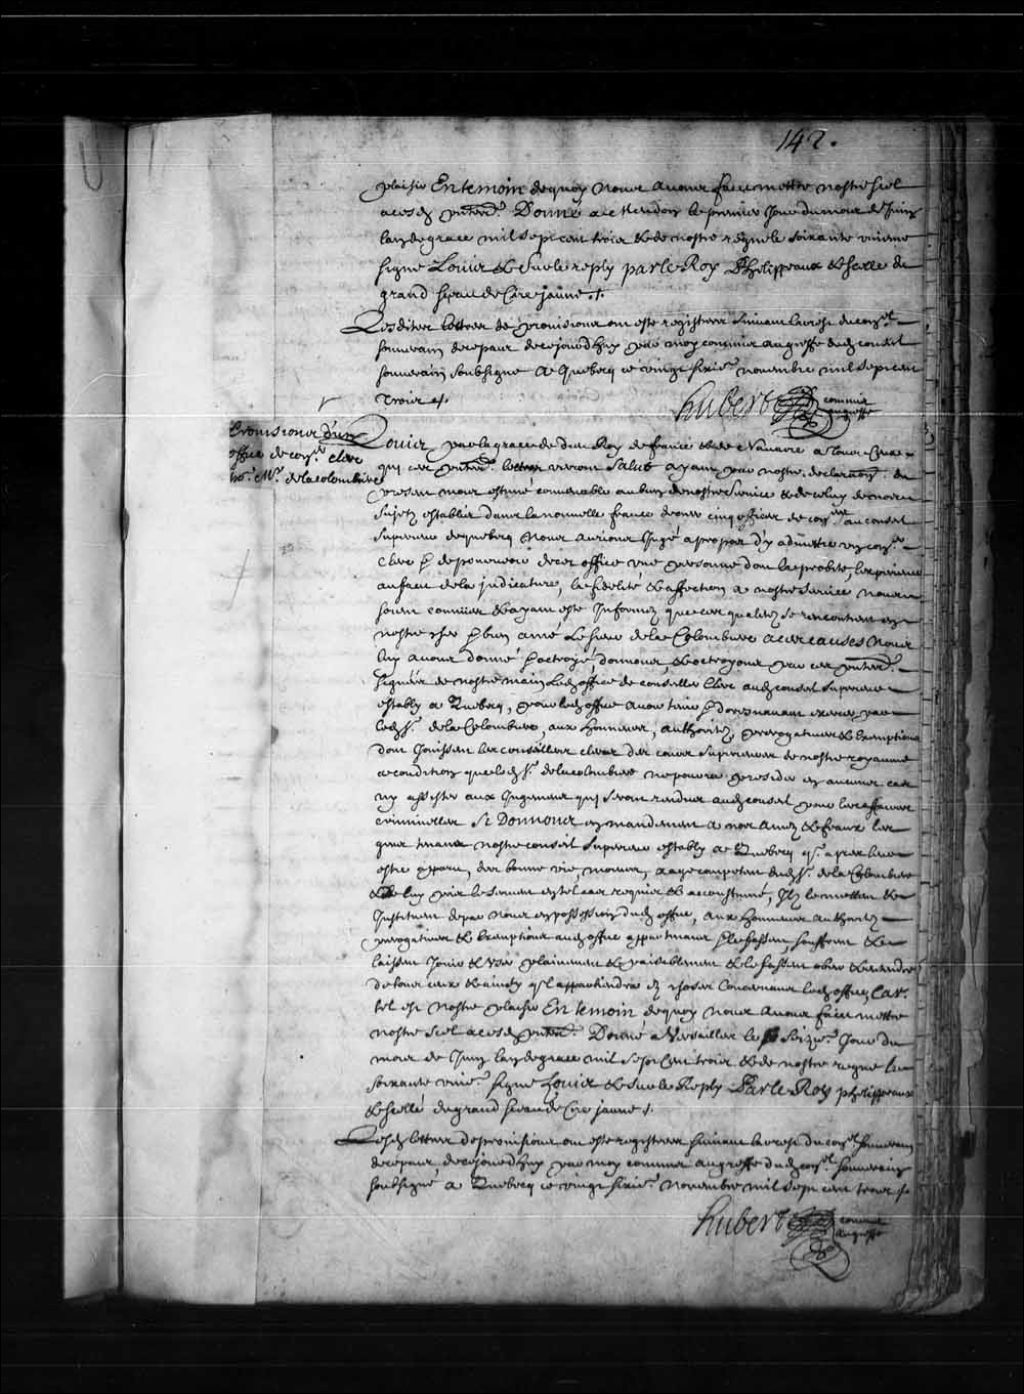 142.
plaisir En temoin dequoy Nous avons fait mettre nostre Scel
a cesd. presentes. Donné a le premier Jour du mois de Juin
lan de grace mil sept cent trois et de nostre regne le soixante unieme
signé Louis et sur le reply par le Roy Phelippeaux et scellé du
grand sceau de Cire jaune ./.
Lesdites lettres de provisions ont esté registrées suivant larrest du con.el
souverain de ce jourd'huy par moy commis au greffe dud. conseil
souverain soubsigné a Quebecq ce vingt novembre mil sept cent
trois ./.
hubert commis au greffe
Provisions d'un
office de con.er clerc
M.r de la colombiere
Louis par la grace de dieu Roy de france et de Navarre a tous ceux
qui ces presentes lettres verront Salut ayant par nostre declaration du
present mois estimé convenable au bien de nostre Service et de celuy de nos
Sujets establis dans la nouvelle france de créer cinq offices de con.ers au conseil
Superieur de quebecq Nous aurions Jugé a propos d'y admettre un con.er
Clerc et de pourvoir de cet office une personne dont la probité, l'experience
au fait de la judicature, la fidelité et affection a nostre Service nous
soient connues et ayant esté Informez que ces qualitez se rencontrent en
nostre cher et bien amé Le sieur de la Colombiere a ces causes Nous
luy avons donné et octroyé, donnons, et octroyons par ces presentes
signées de nostre main led. office de conseiller Clerc aud. conseil Superieur
estably a Quebecq, pour led. office avoir tenir et doresnavant exercer par
led. S.r de la Colombiere, aux honneurs, authoritez, prerogatives et Exemptions
dont Jouissent les conseillers clercs des cours Superieures de nostre royaume
a condition que led. S.r de la colombiere ne pourra presider en aucun cas
ny assister aux Jugemens qui seront rendus aud. conseil pour les affaires
criminelles Si Donnons en mandement a nos amez et feaux les
gens tenans nostre conseil Superieur estably a Quebecq q. apres leur
estre apparu des bonne vie, moeurs, et age competent dud. S.r de la Colombiere
et de luy pris le serment en tel cas requis et accoustumé, Ils le mettent et
Instituent de par Nous en possession dud. office, aux honneurs authoritez
prerogatives et Exemptions aud. office appartenans et le fassent souffrent et
laissent Jouir et user plainement et paisiblement et le fassent obeir et entendre
de tous ceux et ainsy q.l appartiendra es choses Concernans led. office Car
tel est nostre plaisir En temoin dequoy Nous avons fait mettre
nostre Scel a cesd. presentes. Donné a Versailles le Seize.e Jour du
mois de Juin lan de grace mil sept cent trois et de nostre regne le
soixante unie.e signé Louis et sur le Reply Par le Roy phelippeaux
et scellé du grand sceau de Cire jaune ./.
Lesd. lettres de provisions ont esté registrées suivant larrest du con.el souverain
de ce jourd'huy par moy commis au greffe dud. con.el souverain
soubsigné a Quebecq ce vingt novembre mil sept cent trois ./.
hubert commis au greffe